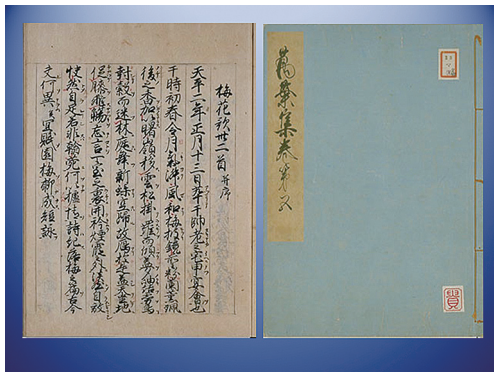 梅花歌卅二首 并序
天平二年正月十三日萃于帥老之宅申宴會也
于時初春令月氣淑風和梅披鏡前之粉蘭薫珮
後之香加以曙嶺移雲松掛羅而傾盖夕岫結霧鳥
封縠而迷林庭舞新蝶空歸故鴈於是盖天坐地
促膝飛觴忘言一室之裏開衿煙霞之外淡然自放
快然自足若非翰苑何以攄情詩紀落梅之篇古今
夫何異矣宜賦園梅聊成短詠
萬葉集巻第五